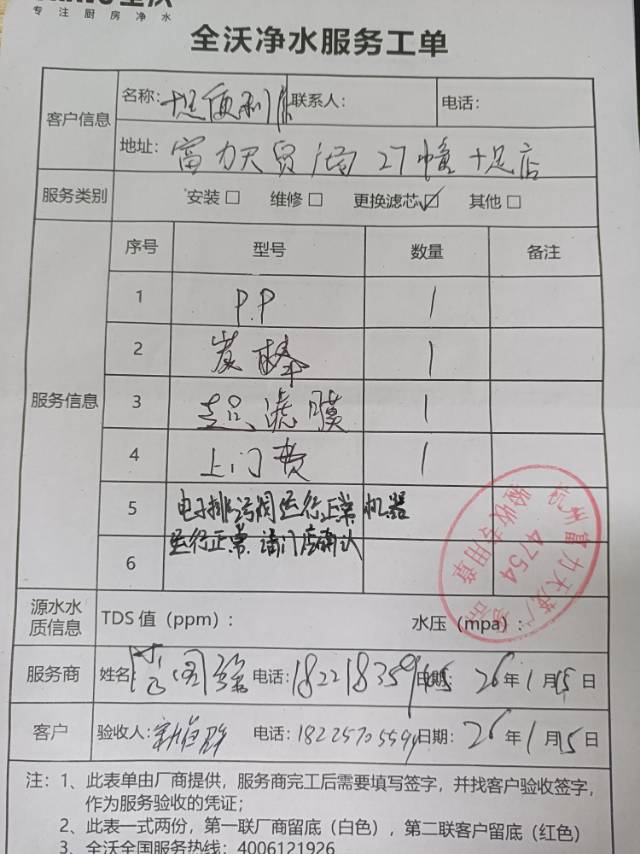 专注厨房净水
全沃净水服务工单
客户信息 名称: 十足便利店 联系人: 电话:
地址: 富力天贸广场27幢十足店
服务类别 安装□ 维修□ 更换滤芯☑ 其他□
服务信息 序号 型号 数量 备注
1 P.P 1
2 炭棒 1
3 超滤膜 1
4 上门费 1
5 电子排污阀运行正常 机器
运行正常. 请门店确认
6
杭州富力天贸广
4754
验收专用章
源水水质信息 TDS 值（ppm）: 水压（mpa）:
服务商 姓名 电话: 日期: 26年1月15日
客户 验收人: 电话: 日期: 26年1月15日
注: 1、此表单由厂商提供，服务商完工后需要填写签字，并找客户验收签字，
作为服务验收的凭证；
2、此表一式两份，第一联厂商留底（白色），第二联客户留底（红色）
3、全沃全国服务热线: 4006121926